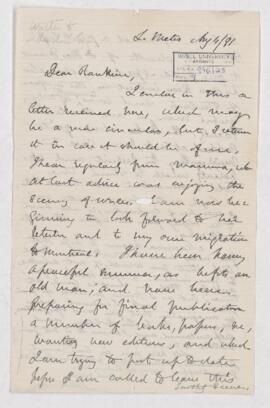 L. Metis Aug 4/91
McGILL UNIVERSITY
ARCHIVES
Dear Rankine,
I enclose in this a
letter received here, which may
be a mere circular, but I return
it in case it should be of use.
I hear regularly from mamma, who
at last advice was enjoying the
scenery of Wales. I am now be-
ginning to look forward to her
return and to my own migration
to Montreal. I have been having
a peaceful summer, as befits an
old man; and have been
preparing for final publication
a number of books, papers, &c,
wanting new editions, and which
I am trying to post up to date
before I am called to leave this
earthly scene.